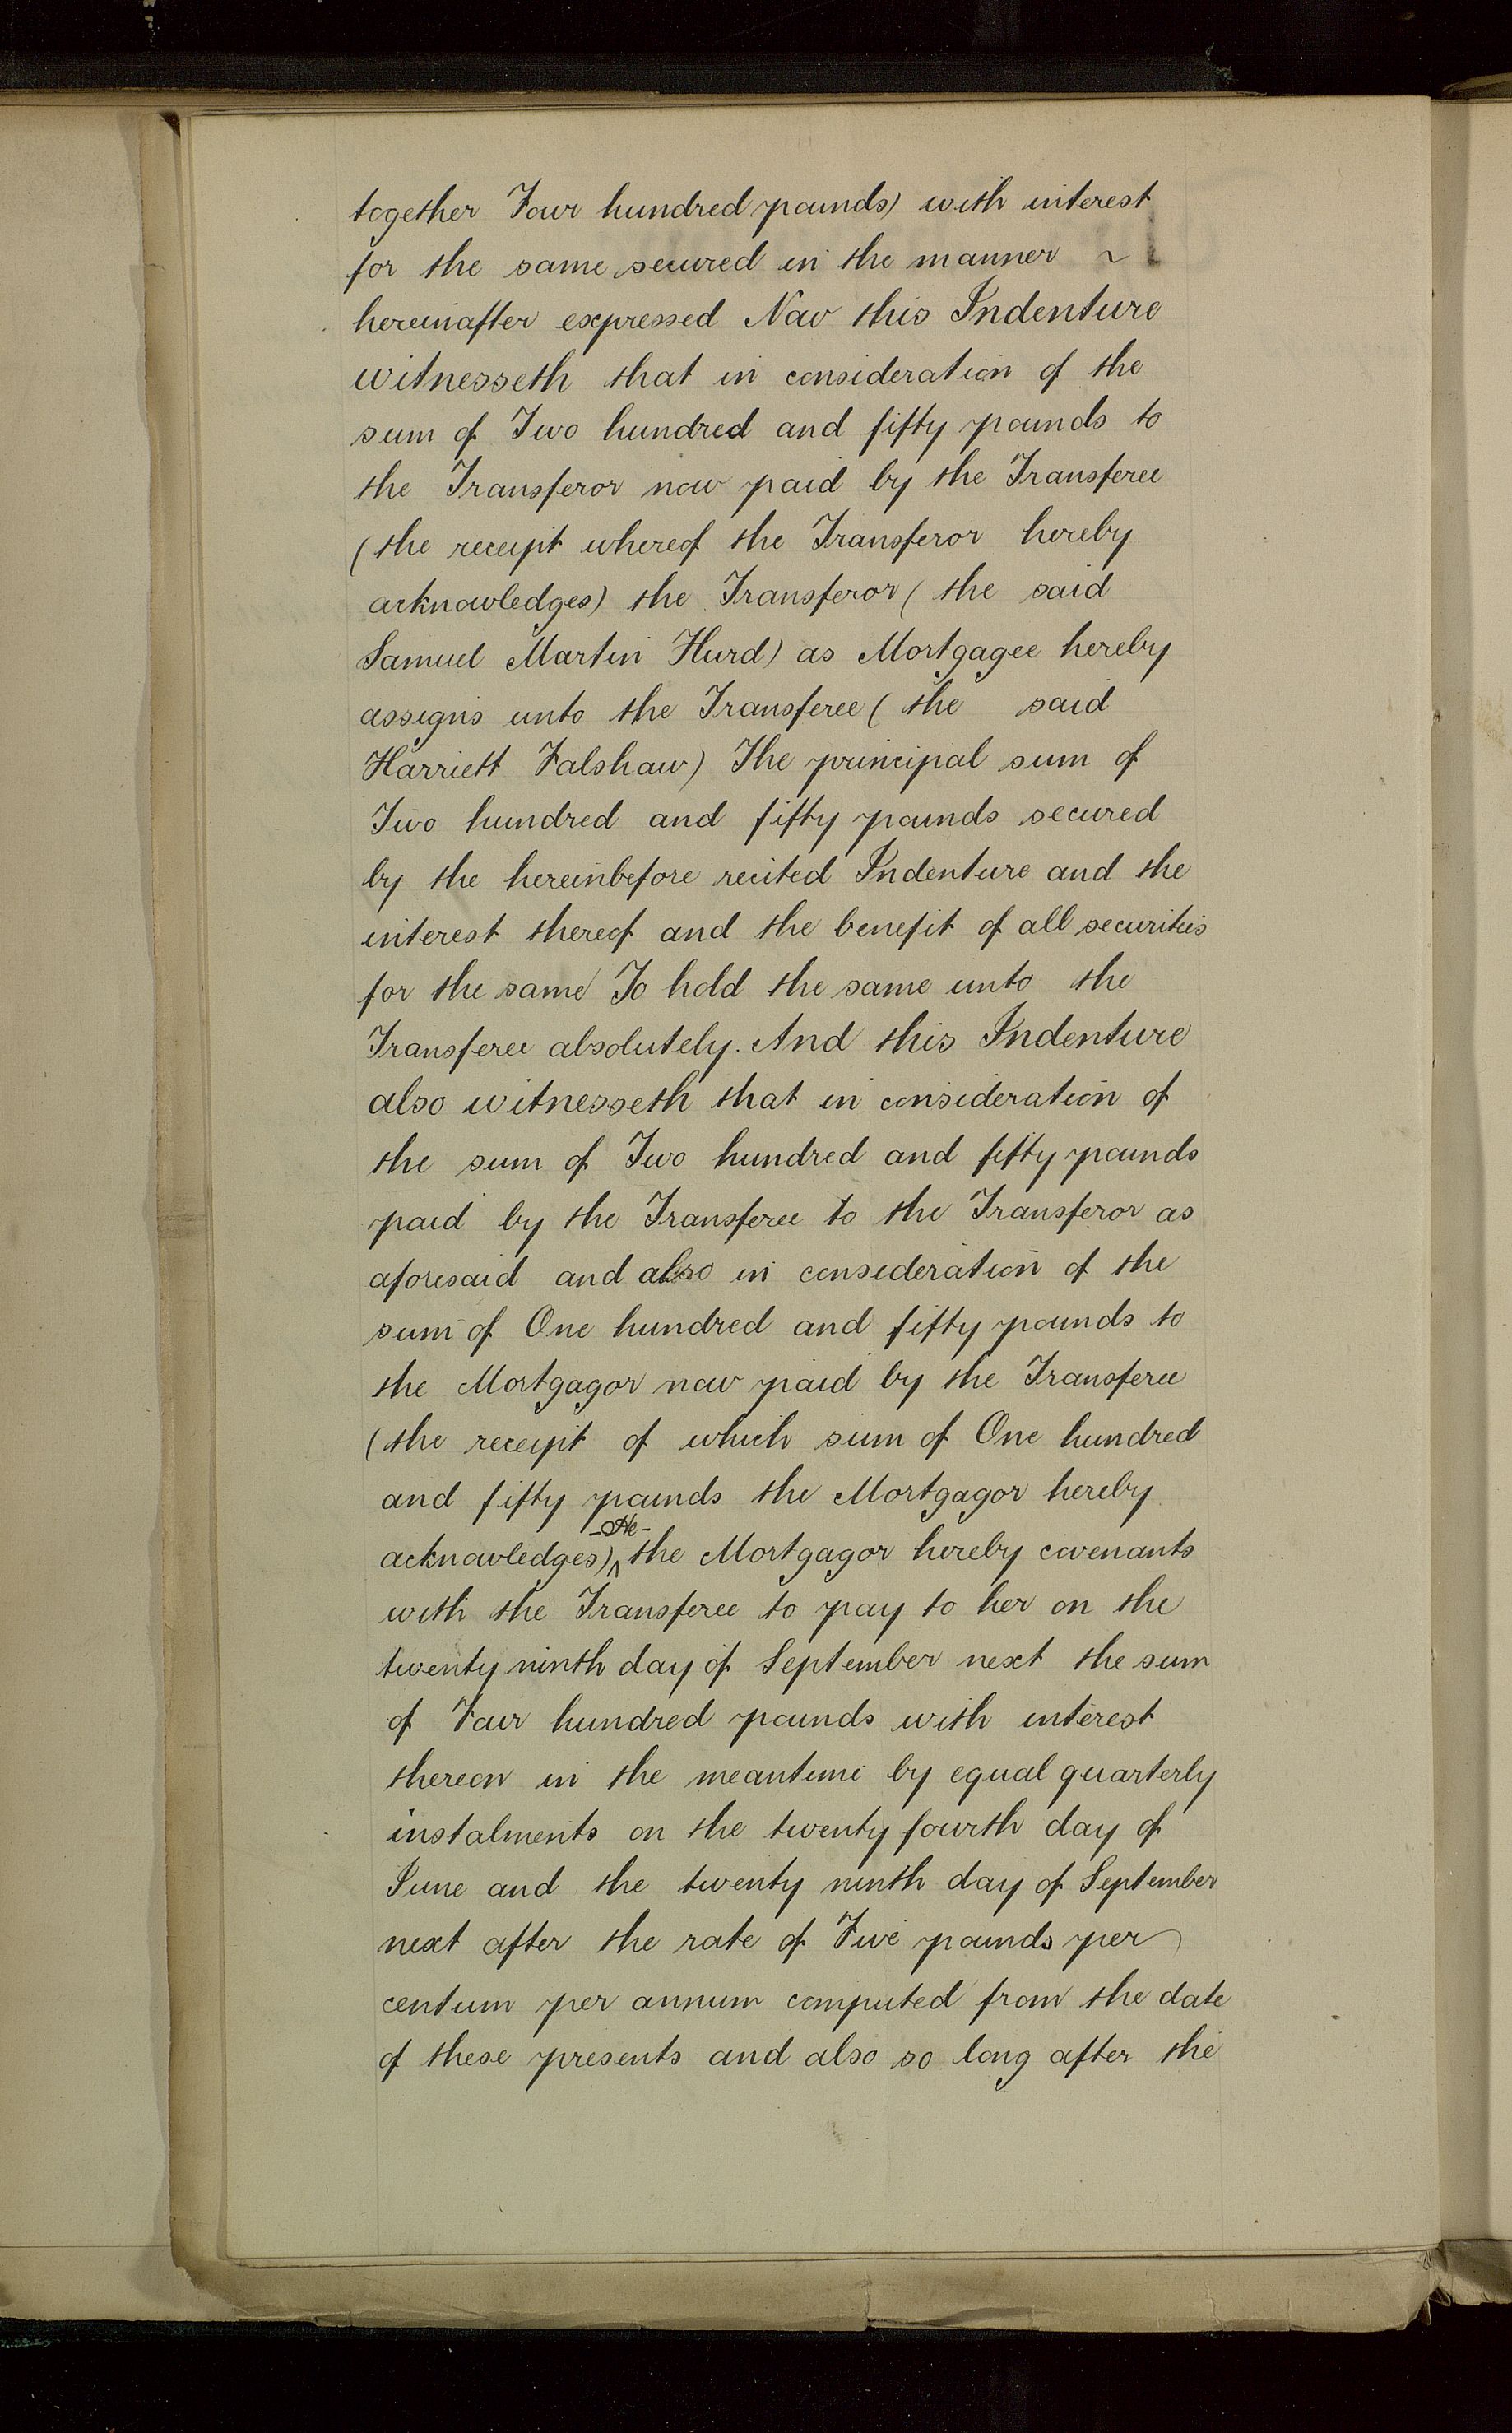 together Four hundred pounds) with interest
for the same secured in the manner ~
hereinafter expressed Now this Indenture
witnesseth that in consideration of the
sum of Two hundred and fifty pounds to
the Transferor now paid by the Transferee
(the receipt whereof the Transferor hereby
acknowledges) the Transferor (the said
Samuel Martin Hurd) as Mortgagee hereby
assigns unto the Transferee (the said
Harriett Falshaw) The principal sum of
Two hundred and fifty pounds secured
by the hereinbefore recited Indenture and the
interest thereof and the benefit of all securities
for the same To hold the same unto the
Transferee absolutely. And this Indenture
also witnesseth that in consideration of
the sum of Two hundred and fifty pounds
paid by the Transferee to the Transferor as
aforesaid and also in consideration of the
sum of One hundred and fifty pounds to
the Mortgagor now paid by the Transferee
(the receipt of which sum of One hundred
and fifty pounds the Mortgagor hereby
acknowledges) the Mortgagor hereby covenants
with the Transferee to pay to her on the
twenty ninth day of September next the sum
of Four hundred pounds with interest
thereon in the meantime by equal quarterly
instalments on the twenty fourth day of
June and the twenty ninth day of September
next after the rate of Five pounds per
centum per annum computed from the date
of these presents and also so long after the